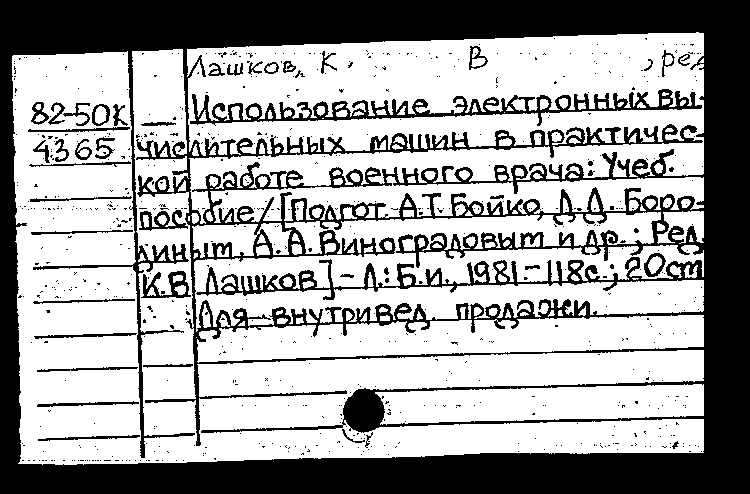 Лашков, К. В , ред
82-50К — Использование электронных вы-
4365 числительных машин в практичес-
кой работе военного врача: Учеб.
пособие / [Подгот. А.Т. Бойко, Д.Д. Боро-
диным, А.А. Виноградовым и др.; Ред.
К.В Лашков]. - Л.: Б.и., 1981. - 118с.; 20см
Для внутривед. продажи.